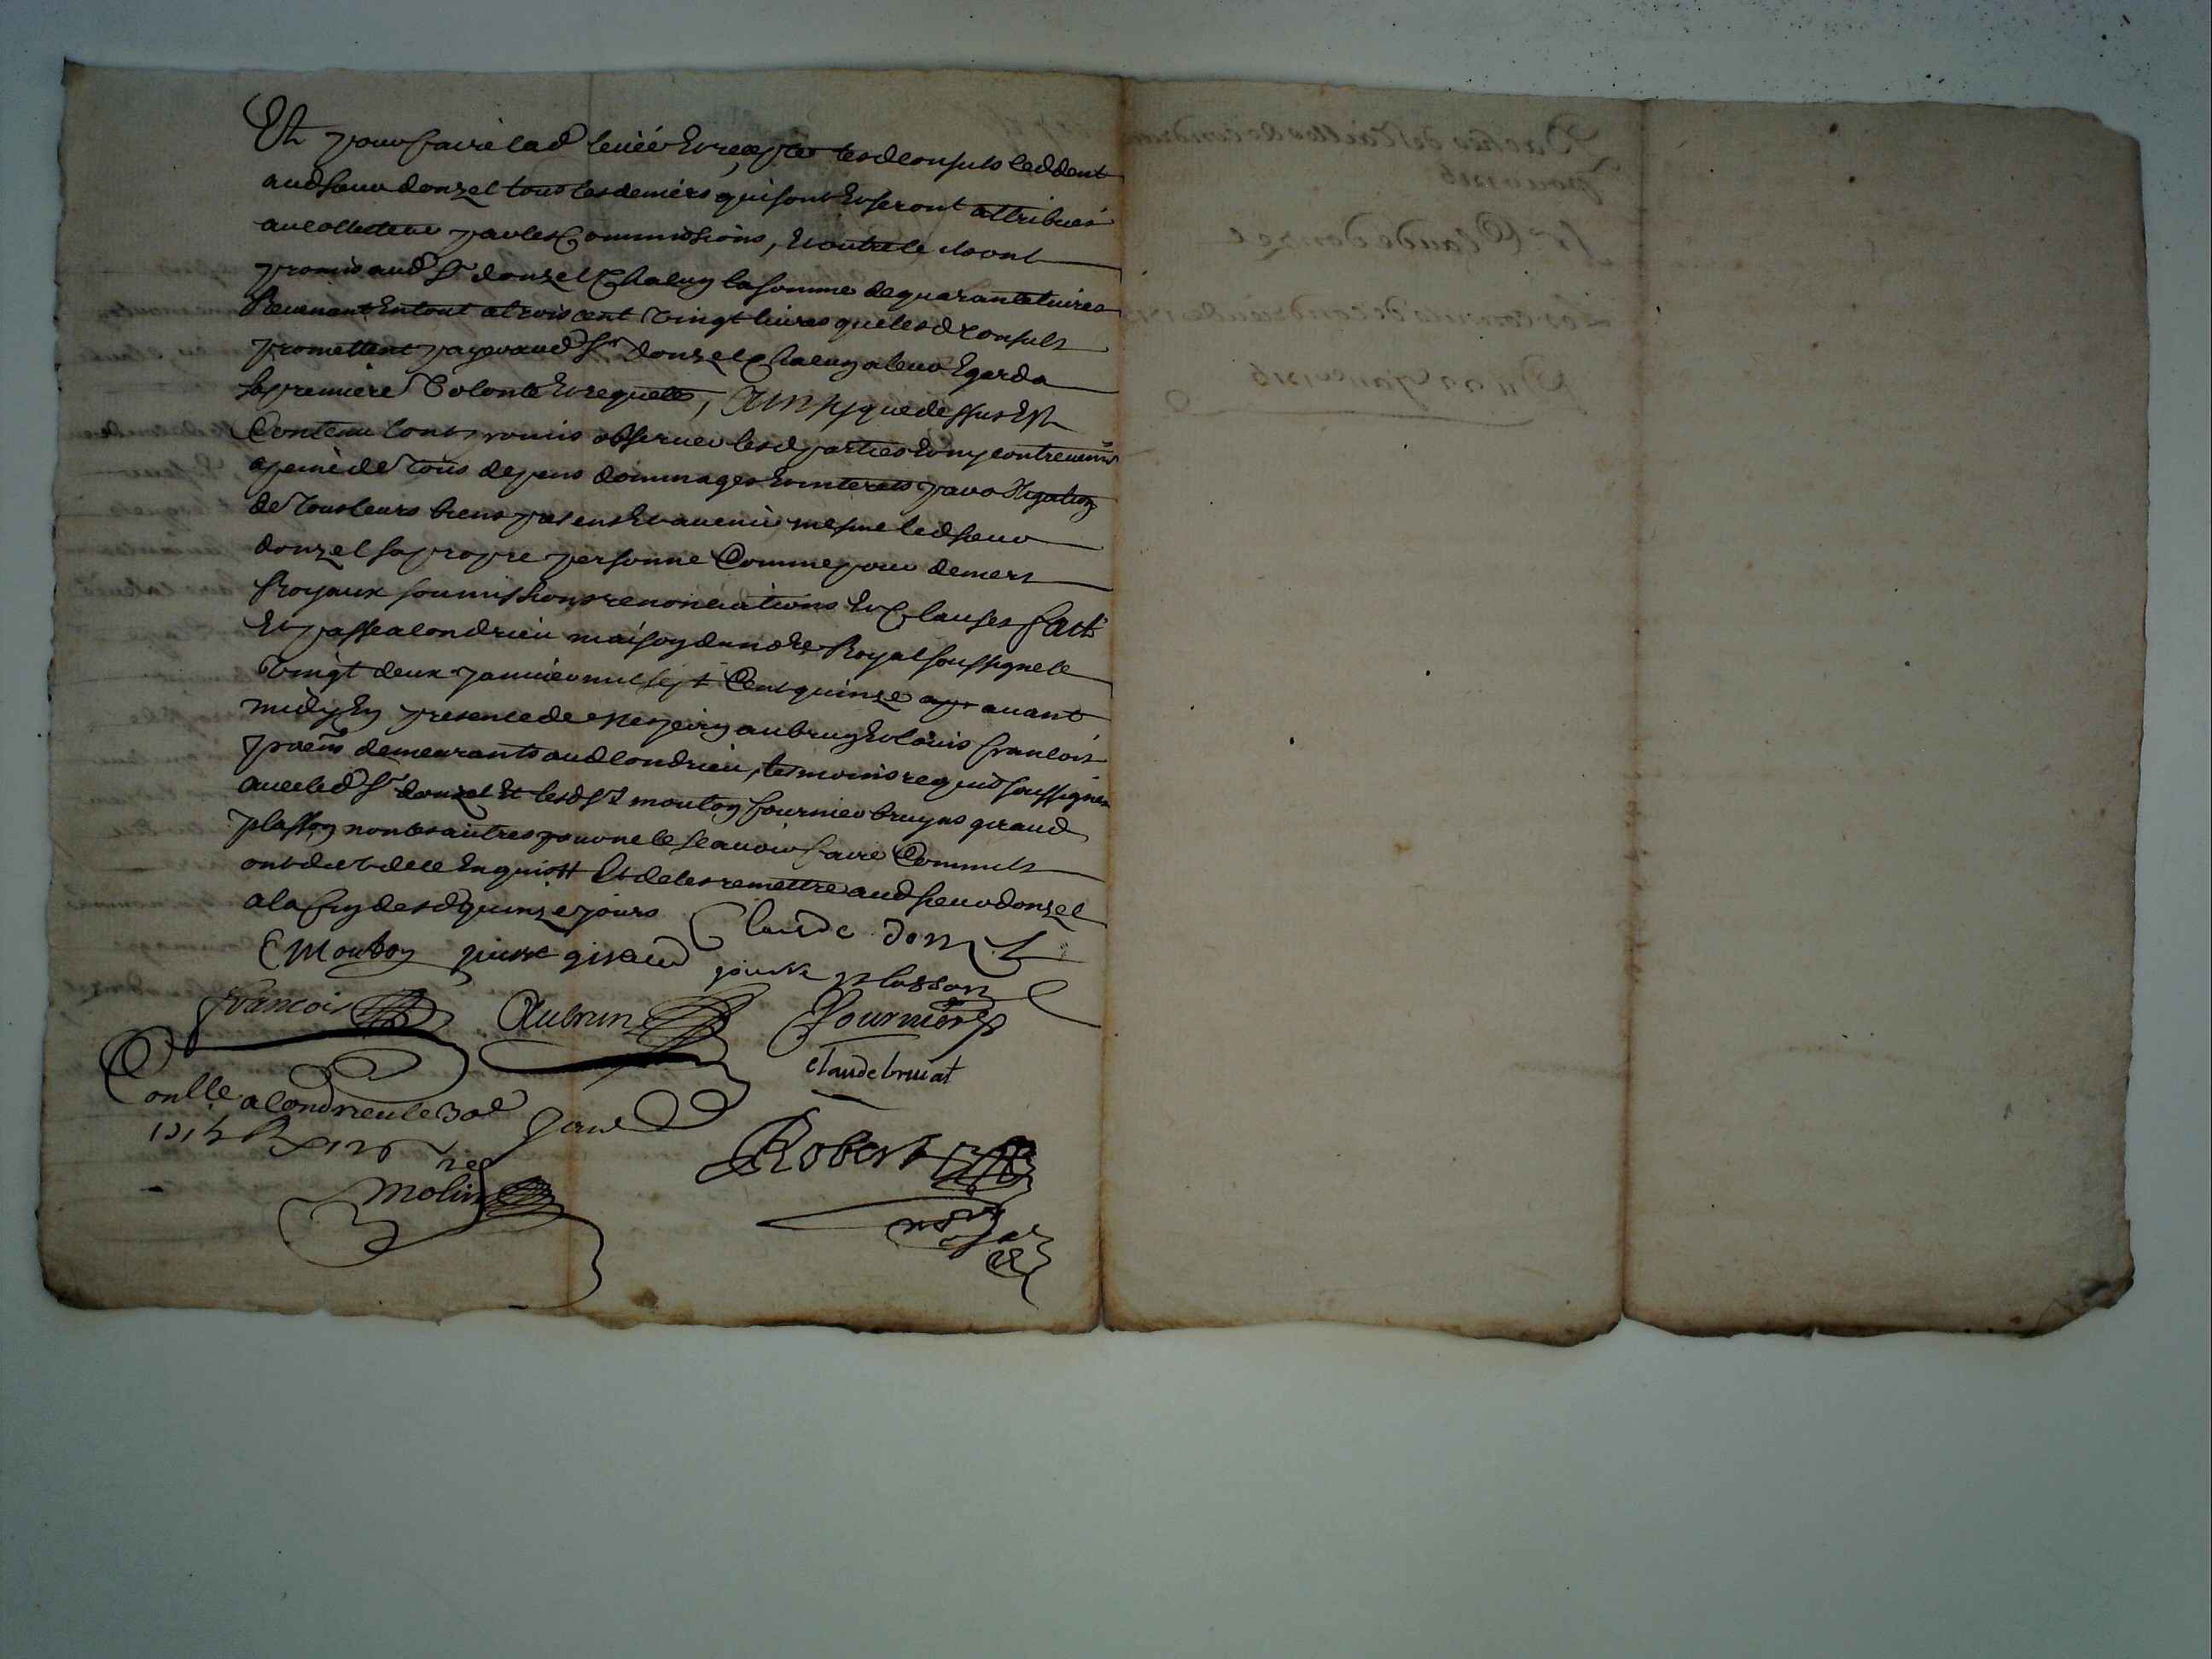 Et pour faire lad levéé et recepte lesd consuls ceddent
aud sieur donzel tous les deniers qui sont et seront attribués
au collecteur par les Commissions, et outre ce ils ont
promis aud Sr donzel Chacun la somme de quarante livres
Revenant en tout a trois cent vingt livres que lesd consuls
promettent payer aud Sr donzel Chacun a leur Egard a
sa premiere volonté et requette, Ainsy que dessus Est
Contenu l'ont promis observer lesd parties et ny contrevenir
a peine de tous depens dommages et interets par obligation
de tous leurs biens presens et avenir mesme led sieur
donzel sa propre personne Comme pour deniers
Royaux soumissions renonciations et Clauses fait
et passé a Condrieu maison du nore Royal soussigne le
vingt deux janvier mil sept Cent quinze avant
midy En presence de aubruy et louis francois
demeurants aud Condrieu, tesmoins requis soussignés
avec led Sr donzel Et lesd Srs mouton fournier bruyas giraud
plasson non les autres pour ne le scavoir faire Comme ils
ont dit de ce Enquis # Et de les remettre aud sieur donzel
a la fin desd quinze jours
Claude donzel
Mouton pierre giraud
plasson
francois Aubrun fournier
claude bruiat
Conlle a Condrieu le 30e janv
1715 R
Robert
molin